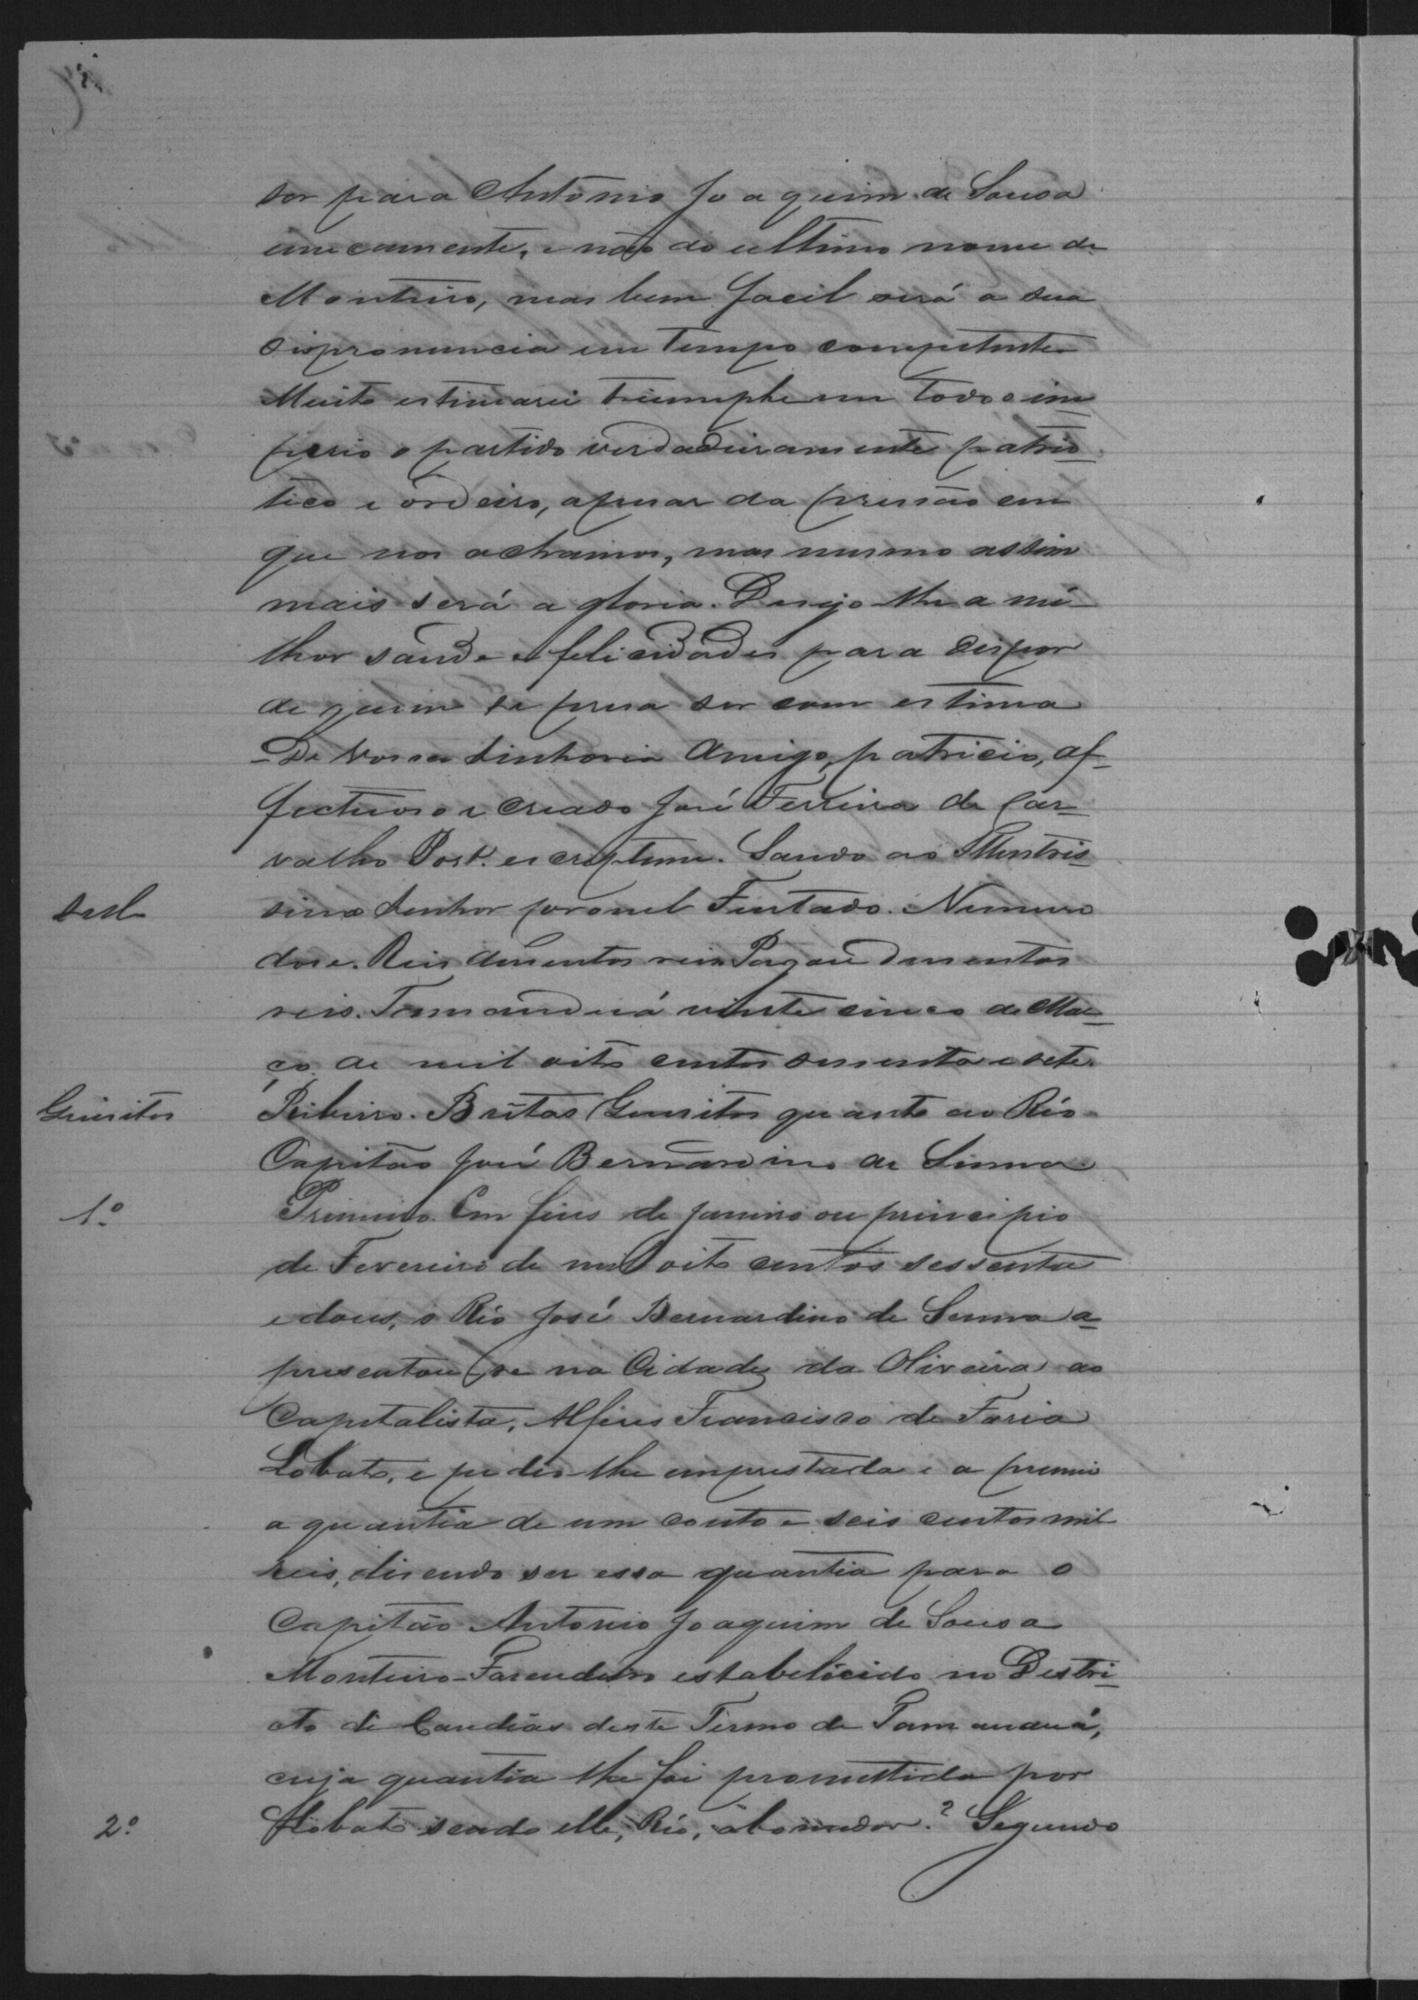 sor para Antonio Joaquim de Sousa
unecamente, e não do ultimo nome de
Monteiro, mas bem facil será a sua
dispronuncia em tempo competente
Muito estimarei triumphe em todo o im-
perio o partido verdadeiramente patrio-
tico e ordeiro, apesar da pressão em
que nos achamos, mas mesmo assim
mais será a gloria. Desejo-lhe a mi-
lhor saude e felicidades para dispor
de quem se presa ser com estima
De Vossa Senhoria Amigo, patricio, af-
fectuoso e criado José Ferreira de Car-
valho Post. escriptum. Saudo ao Illustris-
Sell simo Senhor Coronel Furtado. Numero
dose. Reis dusentos reis Pagou dusentos
reis. Tamanduá vinte cinco de Mar-
ço de mil oito centos sessenta e sete.
Quisitos Ribeiro. Brítas Quesitos quanto ao Réo
Capitão José Bernardino de Senna
1.º Primeiro. Em fins de Janeiro ou principio
de Fevereiro de mil oito centos sessenta
e dous, o Réo José Bernardino de Senna a-
presentou se na Cidade da Oliveira ao
Capitalista, Alferes Francisco de Faria
Lobato, e pedio-lhe emprestada e a premio
a quantia de um conto e seis centos mil
reis, disendo ser essa quantia para o
Capitão Antonio Joaquim de Sousa
Monteiro Fasendeiro estabelecido no Destri-
cto de Candêas deste Termo de Tamanduá,
cuja quantia lhe foi promettida por
2.º Lobato sendo elle, Réo, abonador? Segundo